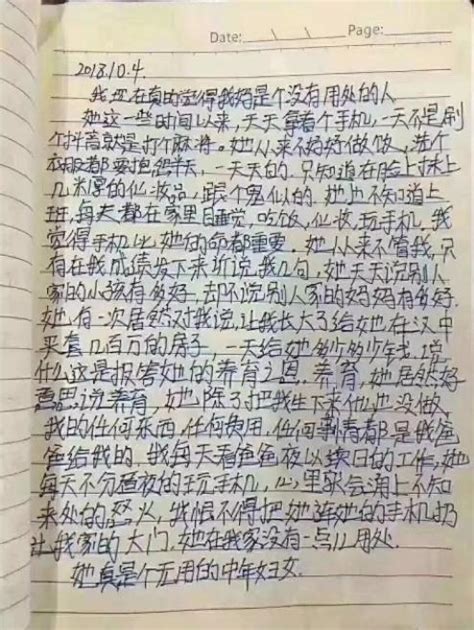 Date: Page:
2018.10.4.
我现在真的觉得我妈是个没有用处的人
她这一些时间以来,天天拿着个手机,一天不是刷
个抖音就是打个麻将。她从来不好好做饭,洗个
衣服都要抱怨半天,一天天的,只知道在脸上抹上
几米厚的化妆品,跟个鬼似的。她也不知道上
班,每天都在家里睡觉,吃饭,化妆,玩手机,我
觉得手机比她的命都重要。她从来不管我,只
有在我成绩发下来近说我几句,她天天说别人
家的小孩有多好,却不说别人家的妈妈有多好.
她有一次居然对我说,让我长大了给她在汉中
买套几百万的房子,一天给她多少多少钱,说
什么这是报答她的养育之恩。养育,她居然好
意思说养育,她除了把我生下来什么也没做,
我的任何东西,任何费用,任何事情都是我爸
爸给我的。我每天看爸爸夜以续日的工作,她
每天不分昼夜的玩手机,心里就会涌上不知
来处的怒火,我恨不得把她连她的手机扔
让我家的大门,她在我家没有一点儿用处.
她真是个无用的中年妇女.